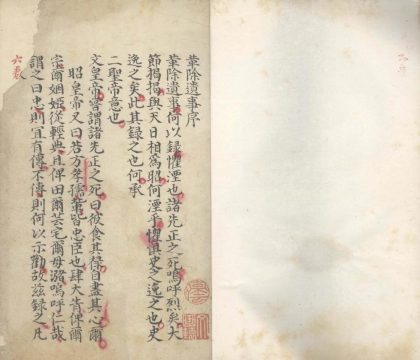 革除遺事序
革除遺事何以録懼湮也諸先正之死嗚呼烈矣大
節揭揭與天日相為昭何湮乎懼史之逸之也史
逸之矣此其録之也何承
二聖帝意也
文皇帝嘗謂諸先正之死曰彼食其禄自盡其心爾
昭皇帝又曰若方孝孺輩皆忠臣也肆大眚俾爾
宗爾姻婭從輕典且俾田爾芸宅爾毋溺嗚呼仁哉
謂之曰忠則宜有傳不傳則何以示勸故兹録之凡